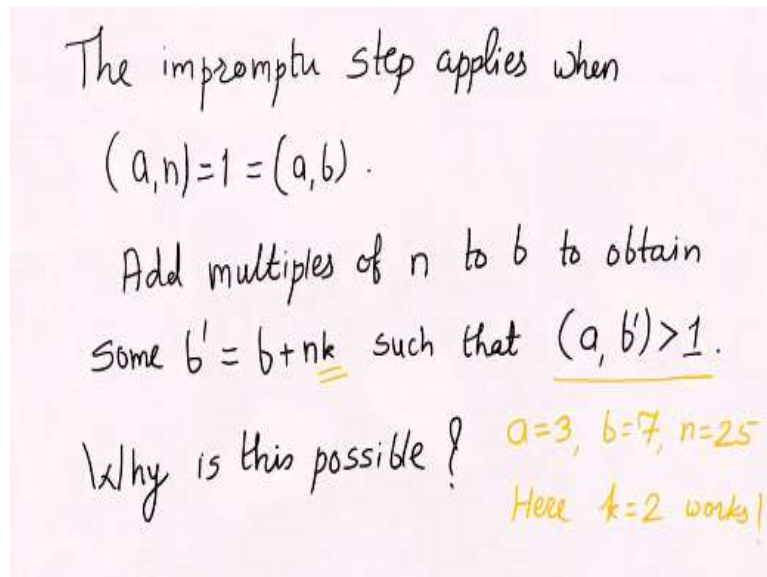 The impromptu step applies when
(a,n)=1=(a,b).
Add multiples of n to b to obtain
some b'=b+nk such that (a,b')>1.
Why is this possible?
a=3, b=7, n=25
Here k=2 works!